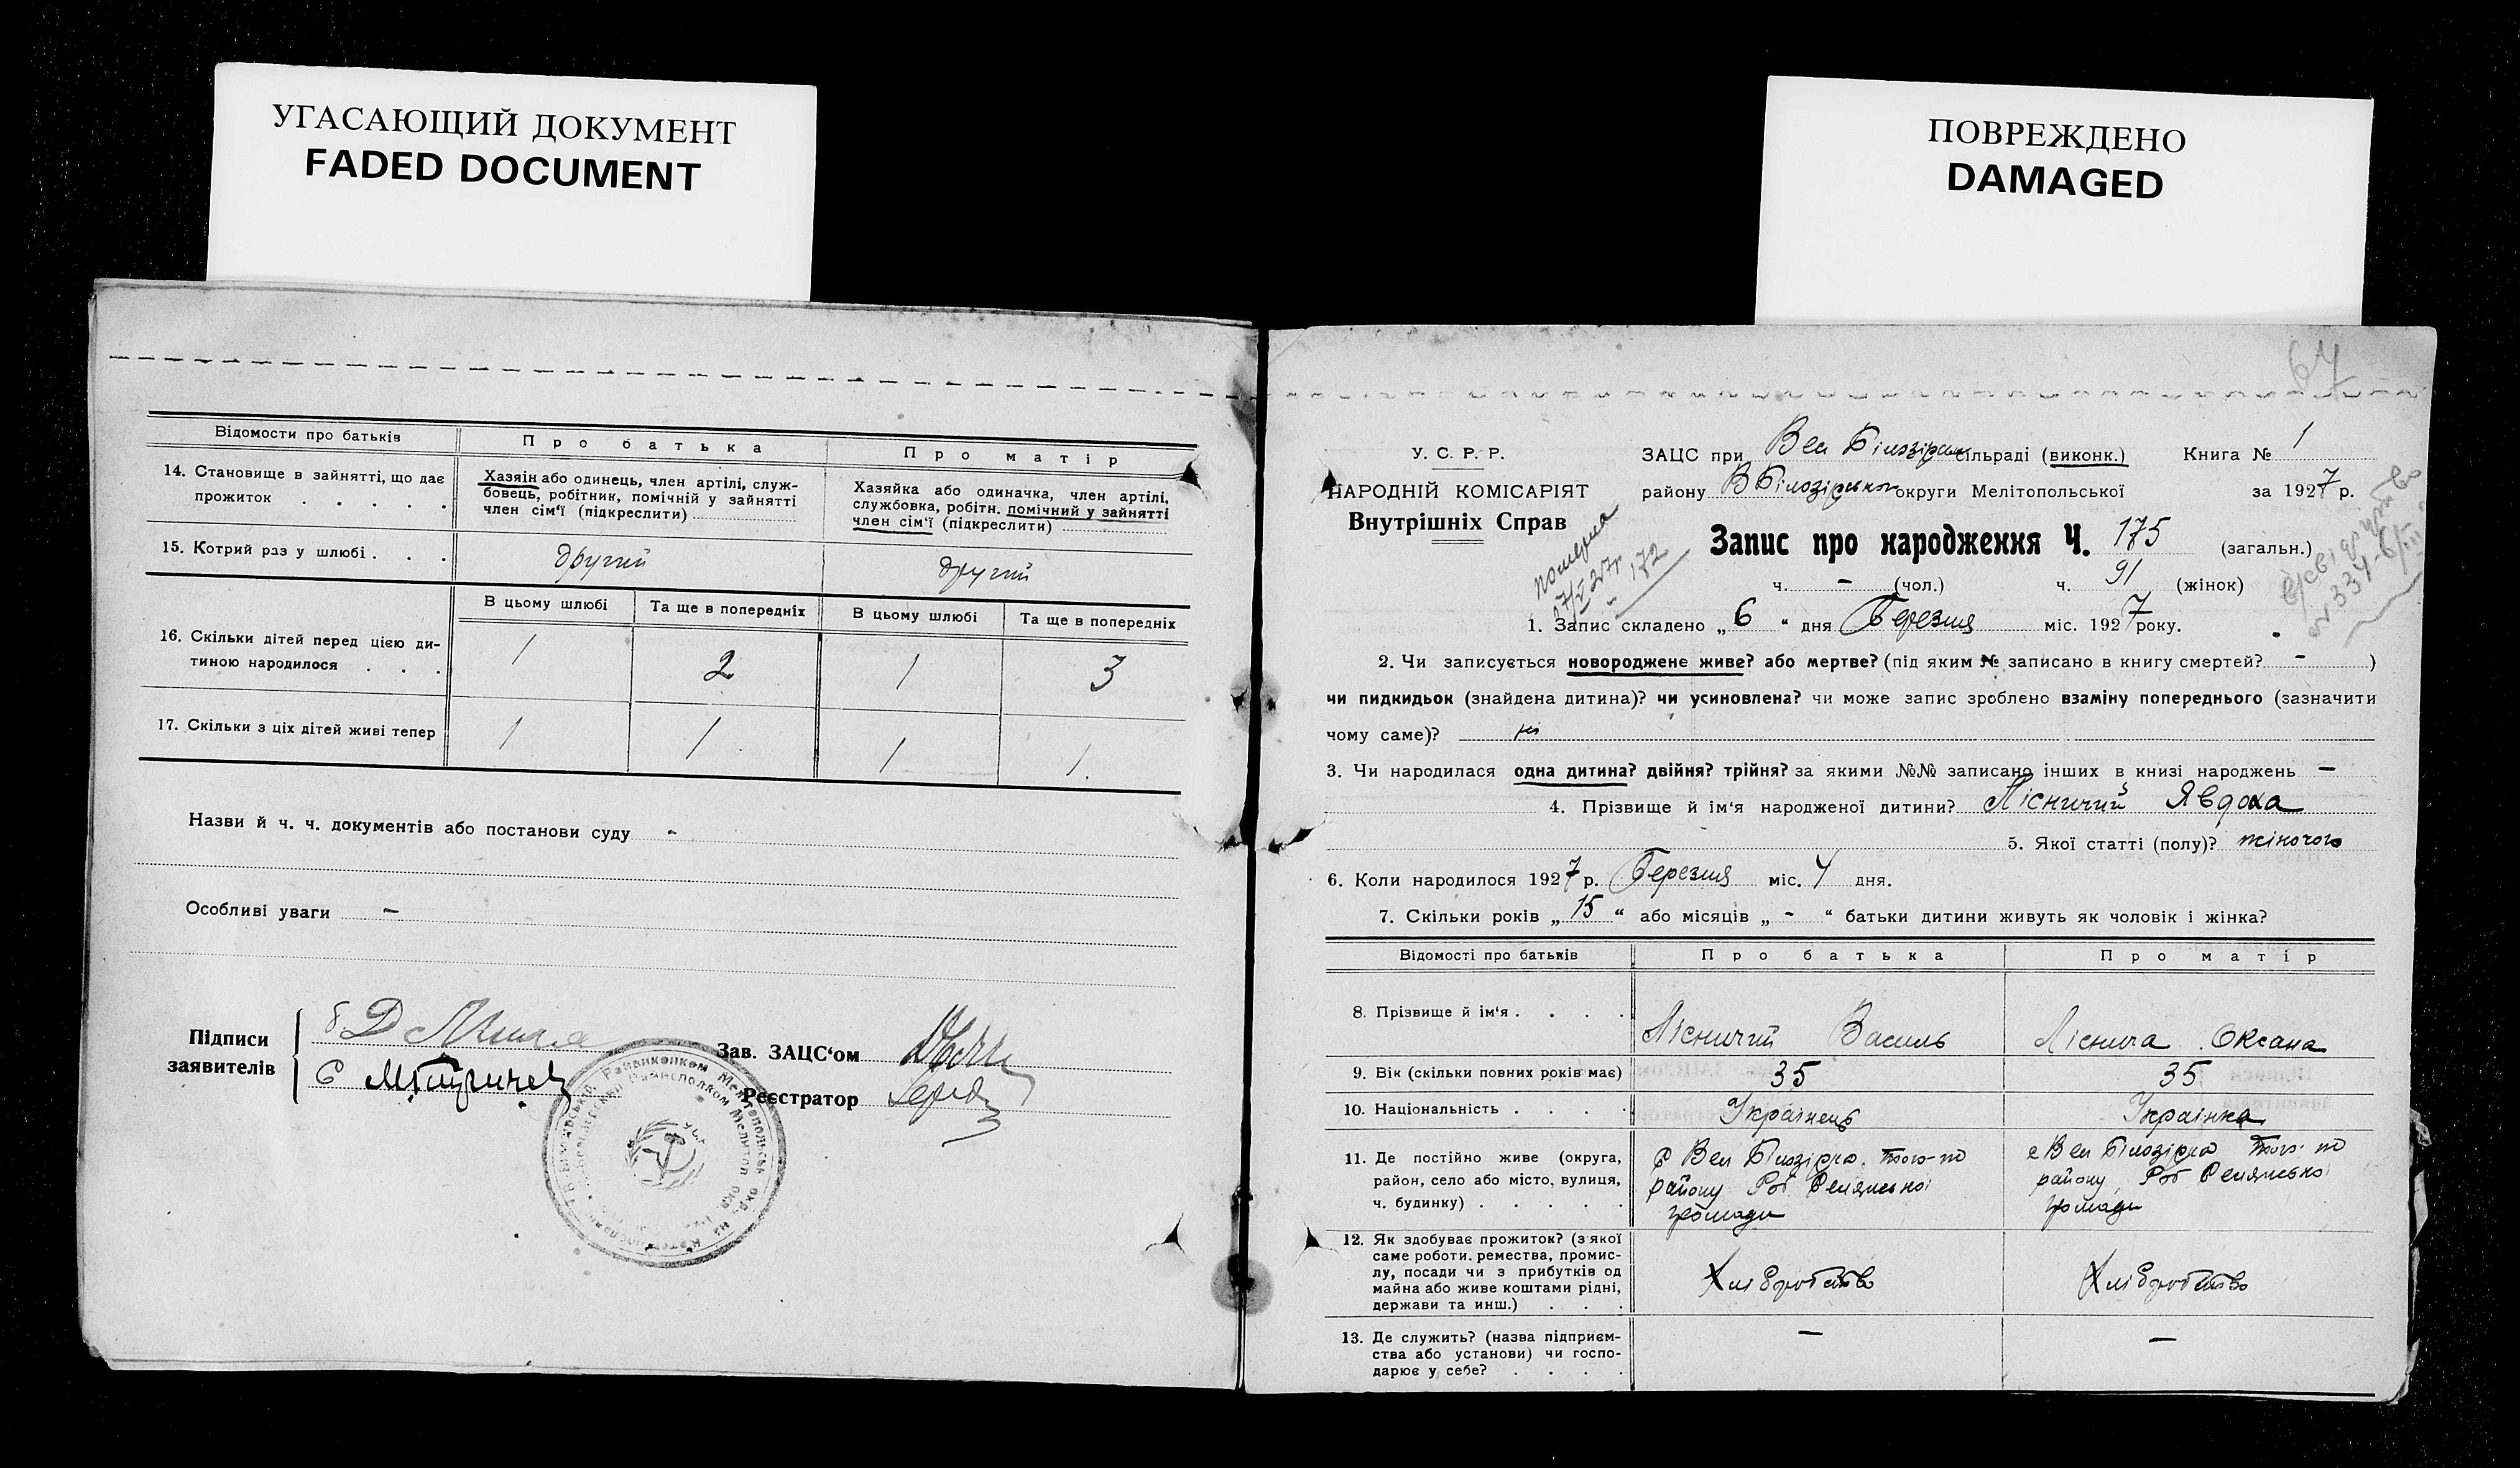 УГАСАЮЩИЙ ДОКУМЕНТ
FADED DOCUMENT
ПОВРЕЖДЕНО
DAMAGED
Відомости про батьків
Про батька
Про матір
14. Становище в зайнятті, що дає прожиток . . . . .
Хазяін або одинець, член артілі, служ-
бовець, робітник, помічній у зайнятті
член сім'ї (підкреслити)
Хазяйка або одиначка, член артілі,
службовка, робітн. помічний у зайнятті
член сім'ї (підкреслити)
15. Котрий раз у шлюбі . . .
другий
другий
В цьому шлюбі
Та ще в попередніх
В цьому шлюбі
Та ще в попередніх
16. Скільки дітей перед цією ди-
тиною народилося . . .
1
2
1
3
17. Скільки з ціх дітей живі тепер
1
1
1
1.
Назви й ч. ч. документів або постанови суду -
Особливі уваги -
Підписи
заявителів
Зав. ЗАЦС'ом
Реєстратор
64
У. С. Р. Р.
НАРОДНІЙ КОМІСАРІЯТ
Внутрішніх Справ
ЗАЦС при Вел Білозірськ сільраді (виконк.) Книга № 1
району ВБілозірської округи Мелітопольської за 1927 р.
Запис про народження Ч. 175 (загальн.)
ч. - (чол.) ч. 91 (жінок)
померла
172
1. Запис складено „6“ дня Березня міс. 1927 року.
2. Чи записується новороджене живе? або мертве? (під яким № записано в книгу смертей? - )
чи пидкидьок (знайдена дитина)? чи усиновлена? чи може запис зроблено взаміну попереднього (зазначити
чому саме)? ні
3. Чи народилася одна дитина? двійня? трійня? за якими №№ записано інших в книзі народжень —
4. Прізвище й ім'я народженої дитини? Лісничий Явдоха
5. Якої статті (полу)? жіночого
6. Коли народилося 1927 р. Березня міс. 4 дня.
7. Скільки років „15“ або місяців „-“ батьки дитини живуть як чоловік і жінка?
Відомості про батьків
Про батька
Про матір
8. Прізвище й ім'я . . . .
Лісничий Василь
Ліснича Оксана
9. Вік (скільки повних років має)
35
35
10. Національність . . . .
Українець
Українка
11. Де постійно живе (округа,
район, село або місто, вулиця,
ч. будинку) . . . . .
с Вел Білозірка того-ж
району
громади
с Вел Білозірка того-ж
району
громади
12. Як здобуває прожиток? (з якої
саме роботи. ремества, промис-
лу, посади чи з прибутків од
майна або живе коштами рідні,
держави та инш.) . . .
Хліборобство
Хліборобство
13. Де служить? (назва підприєм-
ства або установи) чи госпо-
дарює у себе? . . . .
—
—